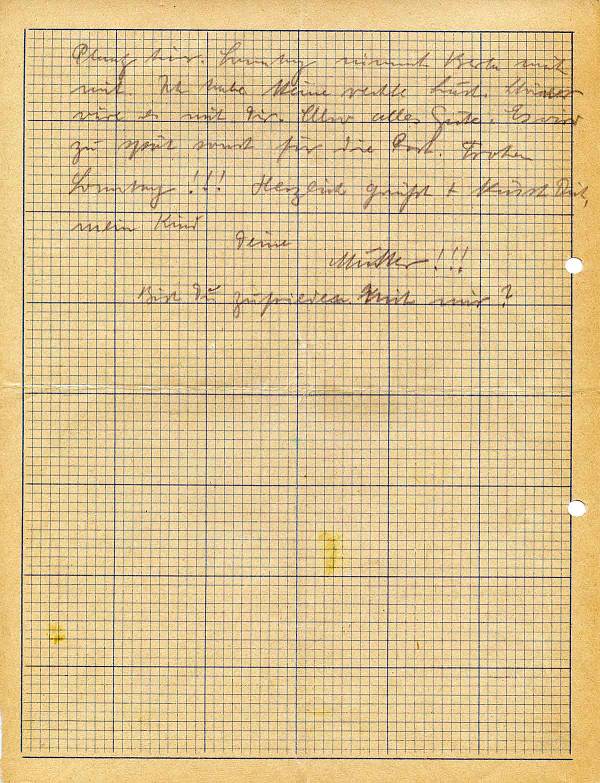 Sonntag nimmt Berta mich
mit. Ich habe keine rechte Lust. Schöner
wäre es mit Dir. Also alles Gute. Es wird
zu spät sonst für die Post. Frohen
Sonntag!!! Herzlich grüßt + küsst Dich,
mein Kind
Deine
Mutter!!!
Bist Du zufrieden mit mir?